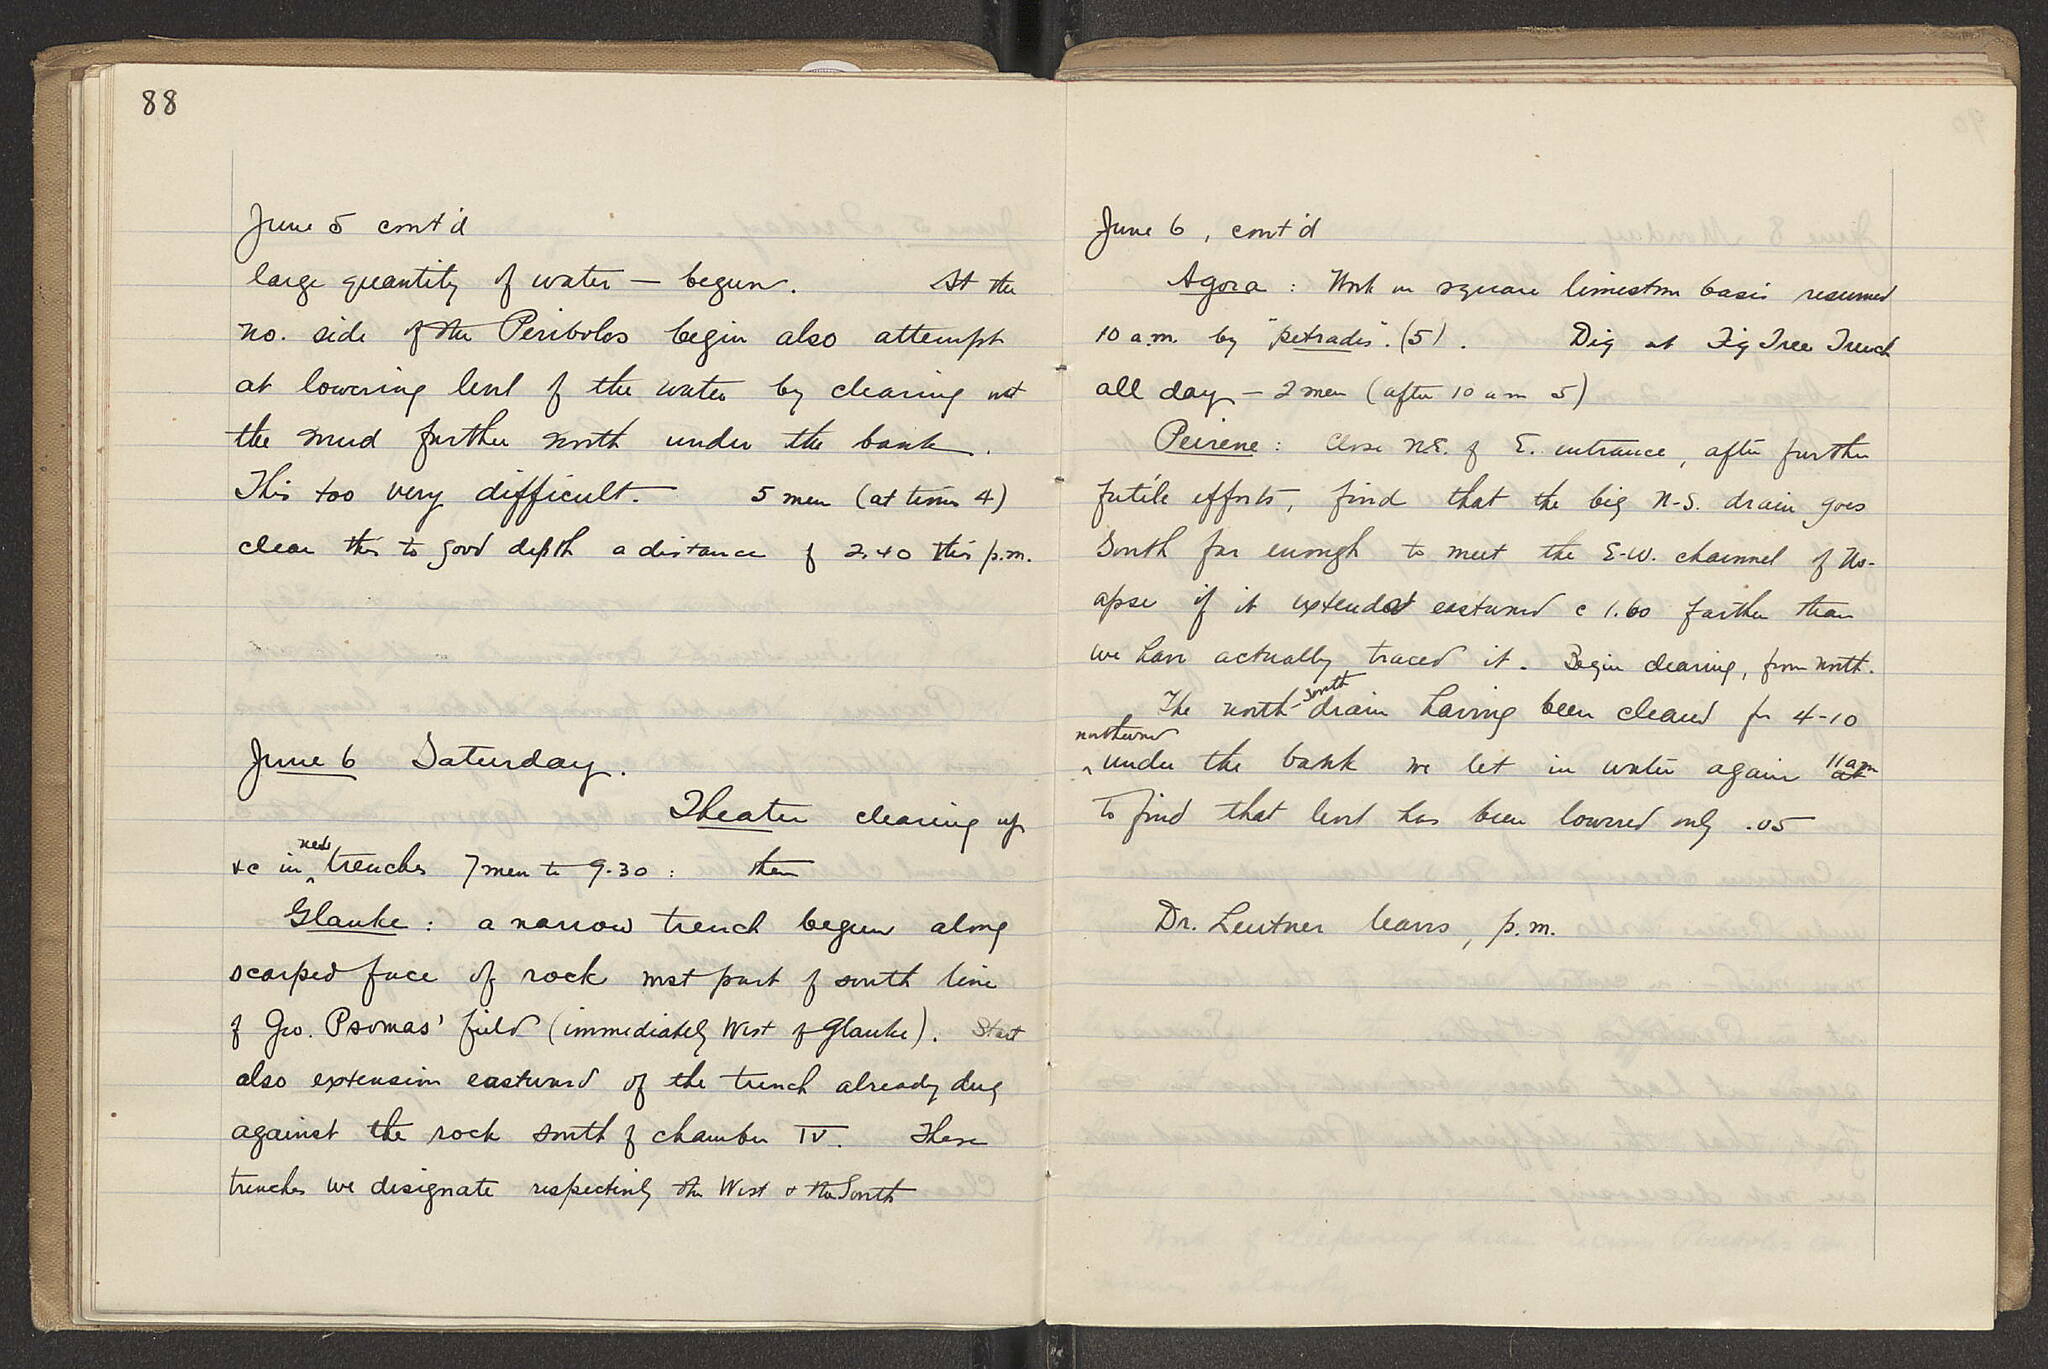 88
June 5 cont'd
large quantity of water — begun. At the
no. side of the Peribolos begin also attempt
at lowering level of the water by clearing out
the mud further north under the bank.
This too very difficult. 5 men (at times 4)
clear this to good depth a distance of 2.40 this p.m.
June 6 Saturday.
Theater clearing up
&c in new trenches 7 men to 9.30 : then
Glauke : a narrow trench begun along
scarped face of rock most part of south line
of Geo. Psomas' field (immediately West of Glauke). Start
also extension eastward of the trench already dug
against the rock south of chamber IV. These
trenches we designate respectively the West & the South
June 6, cont'd
Agora : Work on square limestone basis resumed
10 a.m. by "petrades". (5). Dig at Fig Tree Trench
all day — 2 men (after 10 a m 5)
Peirene : Close N.E. of E. entrance, after further
futile efforts, find that the big N-S. drain goes
South far enough to meet the E-W. channel of No.
apse if it extended eastward c 1.60 farther than
we have actually traced it. Begin clearing, from north.
The north-south drain having been cleared for 4-10
northward under the bank we let in water again 11 am
to find that level has been lowered only .05
Dr. Leutner leaves, p.m.